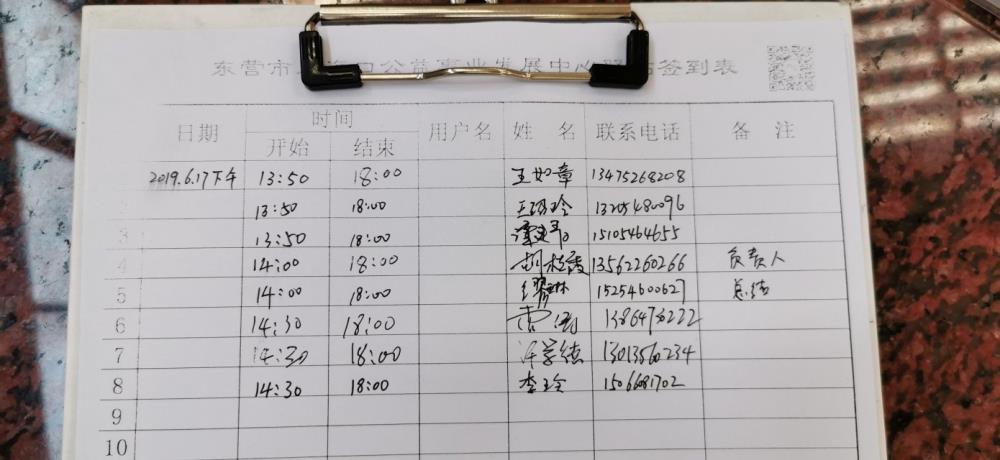 东营市 口公益事业发展中心 签到表
日期 时间 用户名 姓 名 联系电话 备 注
开始 结束
2019.6.17下午 13:50 18:00 王如章 13475268208
13:50 18:00 王 玲 13205480096
3 13:50 18:00 15105464655
4 14:00 18:00 胡桂 13562260266 负责人
5 14:00 18:00 琳 15254600627 总结
6 14:30 18:00 1386473222
7 14:30 18:00 学德 13013560234
8 14:30 18:00 李玲 1506681702
9
10